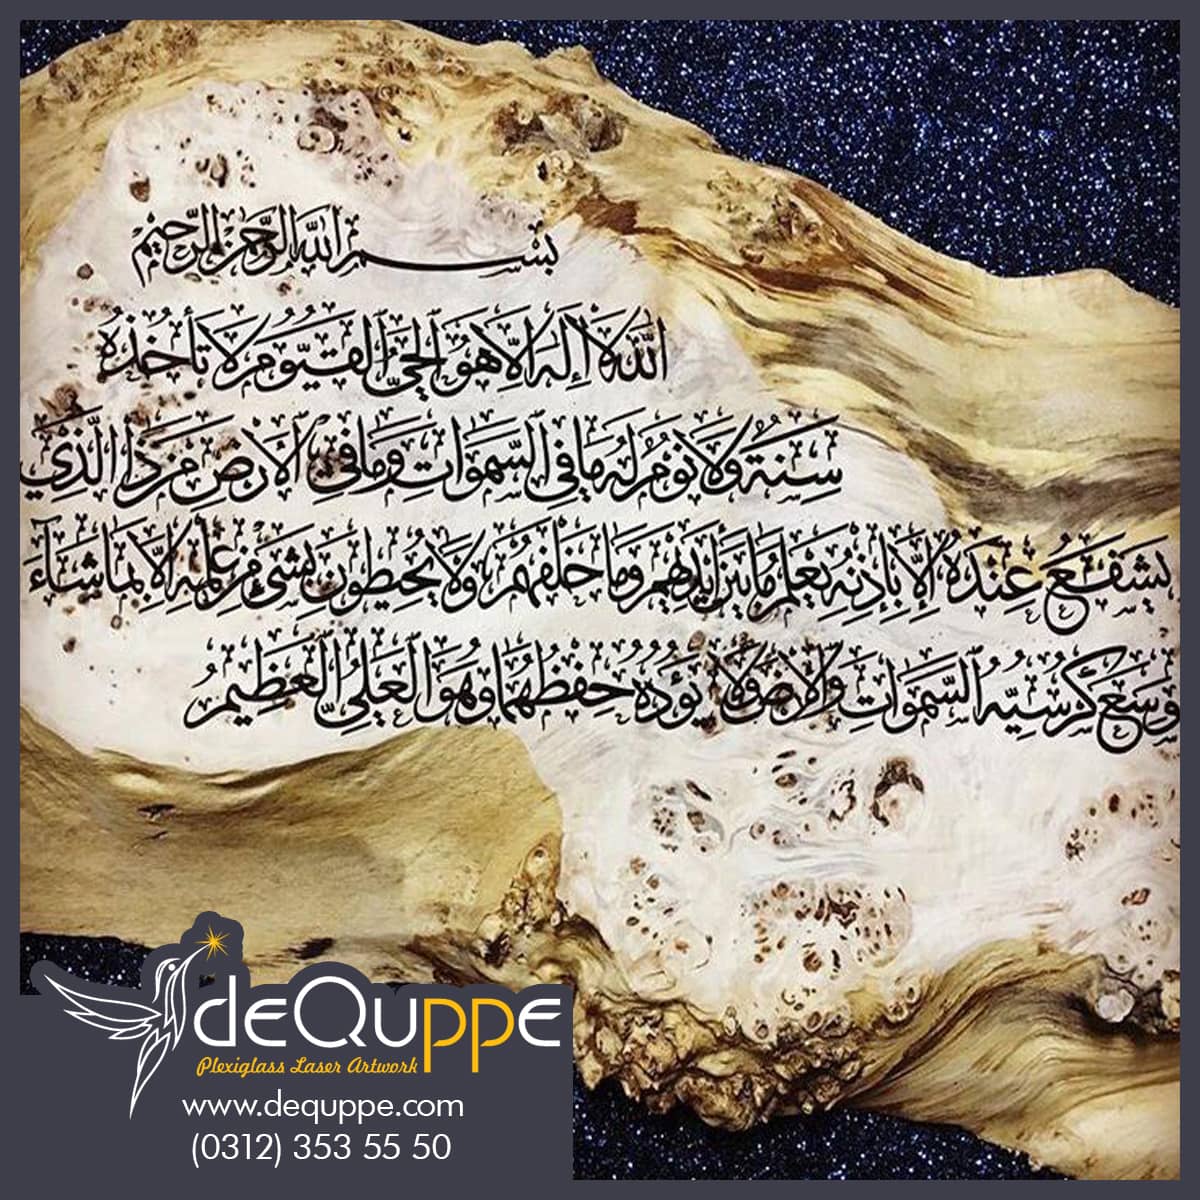 بسم الله الرحمن الرحيم
الله لا إله إلا هو الحي القيوم لا تأخذه
سنة ولا نوم له ما في السموات وما في الارض من ذا الذي
يشفع عنده إلا بإذنه يعلم ما بين أيديهم وما خلفهم ولا يحيطون بشيء من علمه إلا بما شاء
وسع كرسيه السموات والارض ولا يؤده حفظهما وهو العلي العظيم
deQuppe
Plexiglass Laser Artwork
www.dequppe.com
(0312) 353 55 50